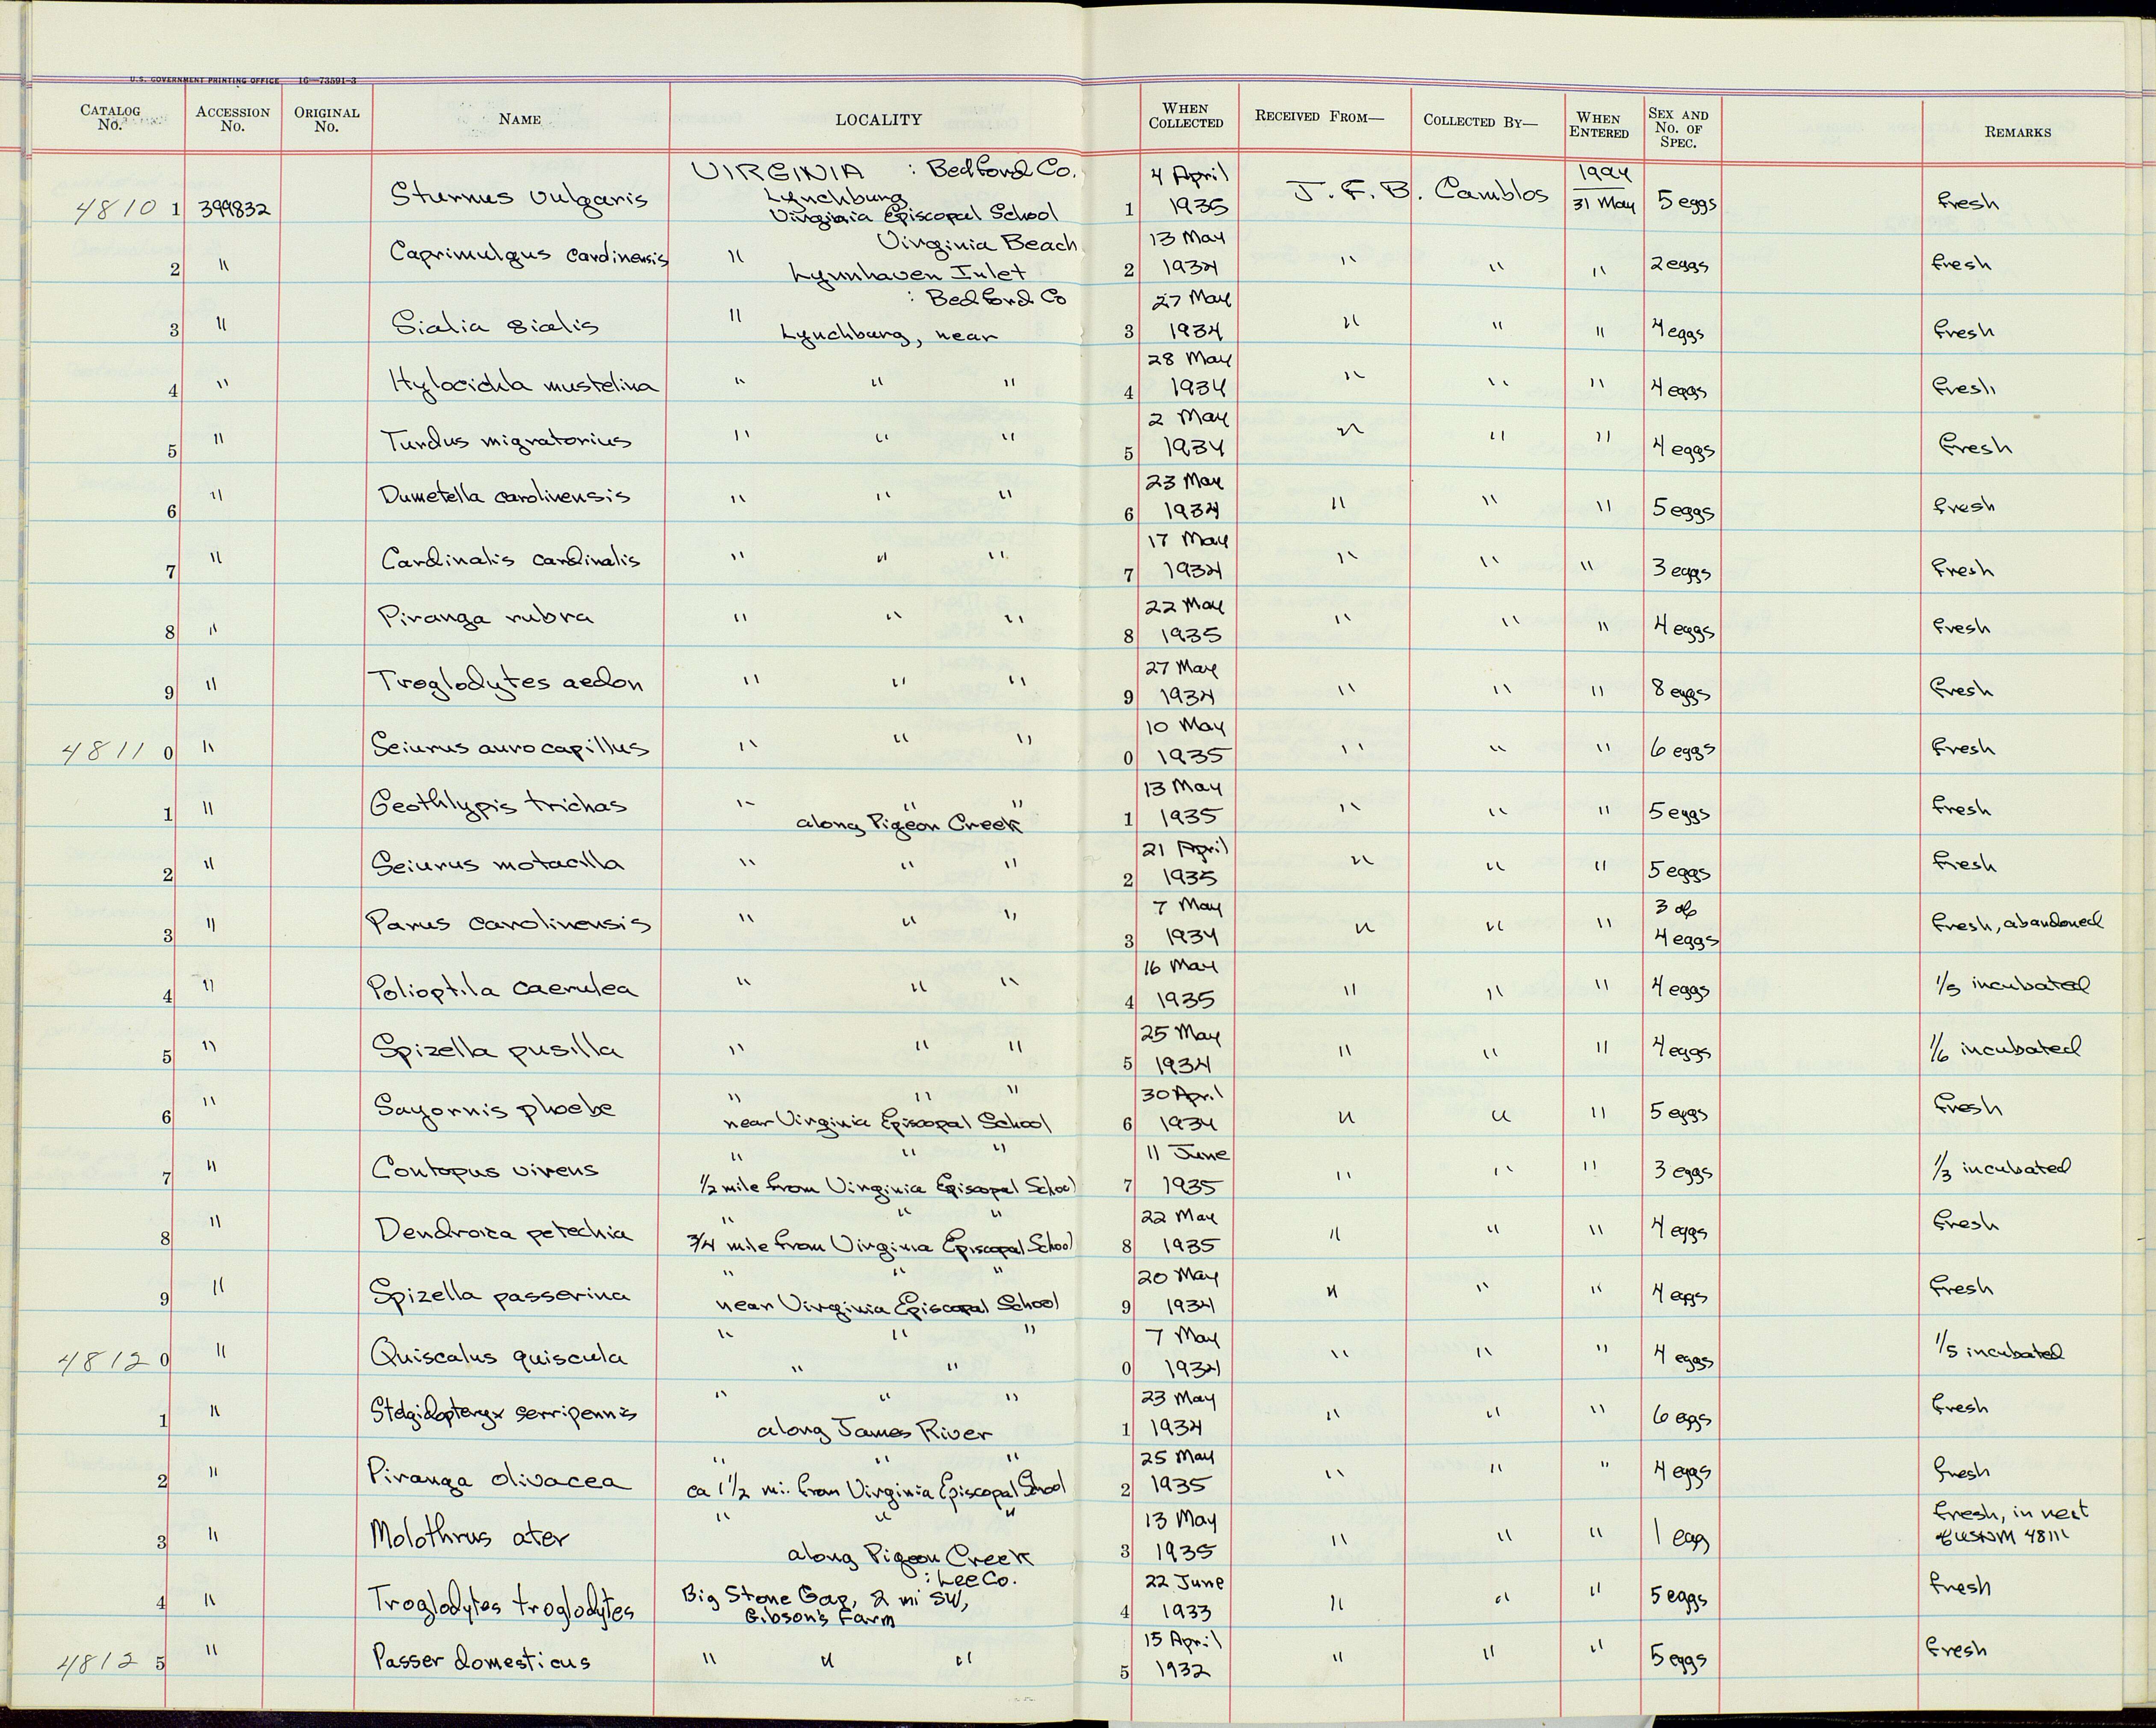 U.S. GOVERNMENT PRINTING OFFICE 16—73591-3
CATALOG No. ACCESSION No. ORIGINAL No. NAME LOCALITY WHEN COLLECTED RECEIVED FROM— COLLECTED BY— WHEN ENTERED SEX AND No. OF SPEC. REMARKS
VIRGINIA : Bedford Co. 4 April 1994
4810 1 399832 Sturnus vulgaris Lynchburg 1 1935 J. F. B. Camblos 31 May 5 eggs fresh
Virginia Episcopal School
Virginia Beach 13 May
2 " Caprimulgus carolinensis " Lynnhaven Inlet 2 1934 " " " 2 eggs fresh
: Bedford Co 27 May
3 " Sialia sialis " Lynchburg, near 3 1934 " " " 4 eggs fresh
28 May
4 " Hylocichla mustelina " " " 4 1934 " " " 4 eggs fresh
2 May
5 " Turdus migratorius " " " 5 1934 " " " 4 eggs fresh
23 May
6 " Dumetella carolinensis " " " 6 1934 " " " 5 eggs fresh
17 May
7 " Cardinalis cardinalis " " " 7 1934 " " " 3 eggs fresh
22 May
8 " Piranga rubra " " " 8 1935 " " " 4 eggs fresh
27 May
9 " Troglodytes aedon " " " 9 1934 " " " 8 eggs fresh
10 May
4811 0 " Seiurus aurocapillus " " " 0 1935 " " " 6 eggs fresh
13 May
1 " Geothlypis trichas " " " 1 1935 " " " 5 eggs fresh
along Pigeon Creek
21 April
2 " Seiurus motacilla " " " 2 1935 " " " 5 eggs fresh
7 May 3 of
3 " Parus carolinensis " " " 3 1934 " " " 4 eggs fresh, abandoned
16 May
4 " Polioptila caerulea " " " 4 1935 " " " 4 eggs 1/5 incubated
25 May
5 " Spizella pusilla " " " 5 1934 " " " 4 eggs 1/6 incubated
" " " 30 April
6 " Sayornis phoebe near Virginia Episcopal School 6 1934 " " " 5 eggs fresh
" " " 11 June
7 " Contopus virens 1/2 mile from Virginia Episcopal School 7 1935 " " " 3 eggs 1/3 incubated
" " " 22 May
8 " Dendroica petechia 3/4 mile from Virginia Episcopal School 8 1935 " " " 4 eggs fresh
" " " 20 May
9 " Spizella passerina near Virginia Episcopal School 9 1934 " " " 4 eggs fresh
" " " 7 May
4812 0 " Quiscalus quiscula " " 0 1934 " " " 4 eggs 1/5 incubated
" " " 23 May
1 " Stelgidopteryx serripennis along James River 1 1934 " " " 6 eggs fresh
" " " 25 May
2 " Piranga olivacea ca 1 1/2 mi. from Virginia Episcopal School 2 1935 " " " 4 eggs fresh
" " " 13 May fresh, in nest
3 " Molothrus ater along Pigeon Creek 3 1935 " " " 1 egg of USNM 48111
: Lee Co. 22 June
4 " Troglodytes troglodytes Big Stone Gap, 2 mi SW, 4 1933 " " " 5 eggs fresh
Gibson's Farm
15 April
4812 5 " Passer domesticus " " " 5 1932 " " " 5 eggs fresh